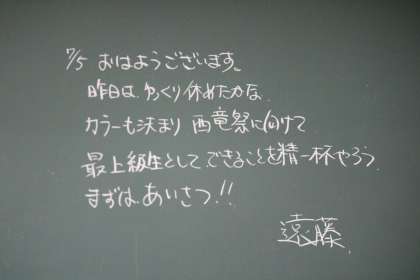 7/5 おはようございます。
昨日は、ゆっくり休めたかな。
カラーも決まり 西竜祭に向けて
最上級生として、できることを精一杯やろう。
まずは、あいさつ!!
遠藤